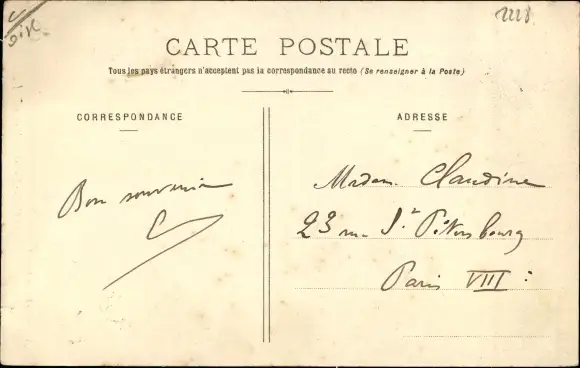 2228
CARTE POSTALE
Tous les pays étrangers n'acceptent pas la correspondance au recto (Se renseigner à la Poste)
CORRESPONDANCE
Bon souvenir
ADRESSE
Madame Claudine
23 rue St Pétersbourg
Paris VIII :